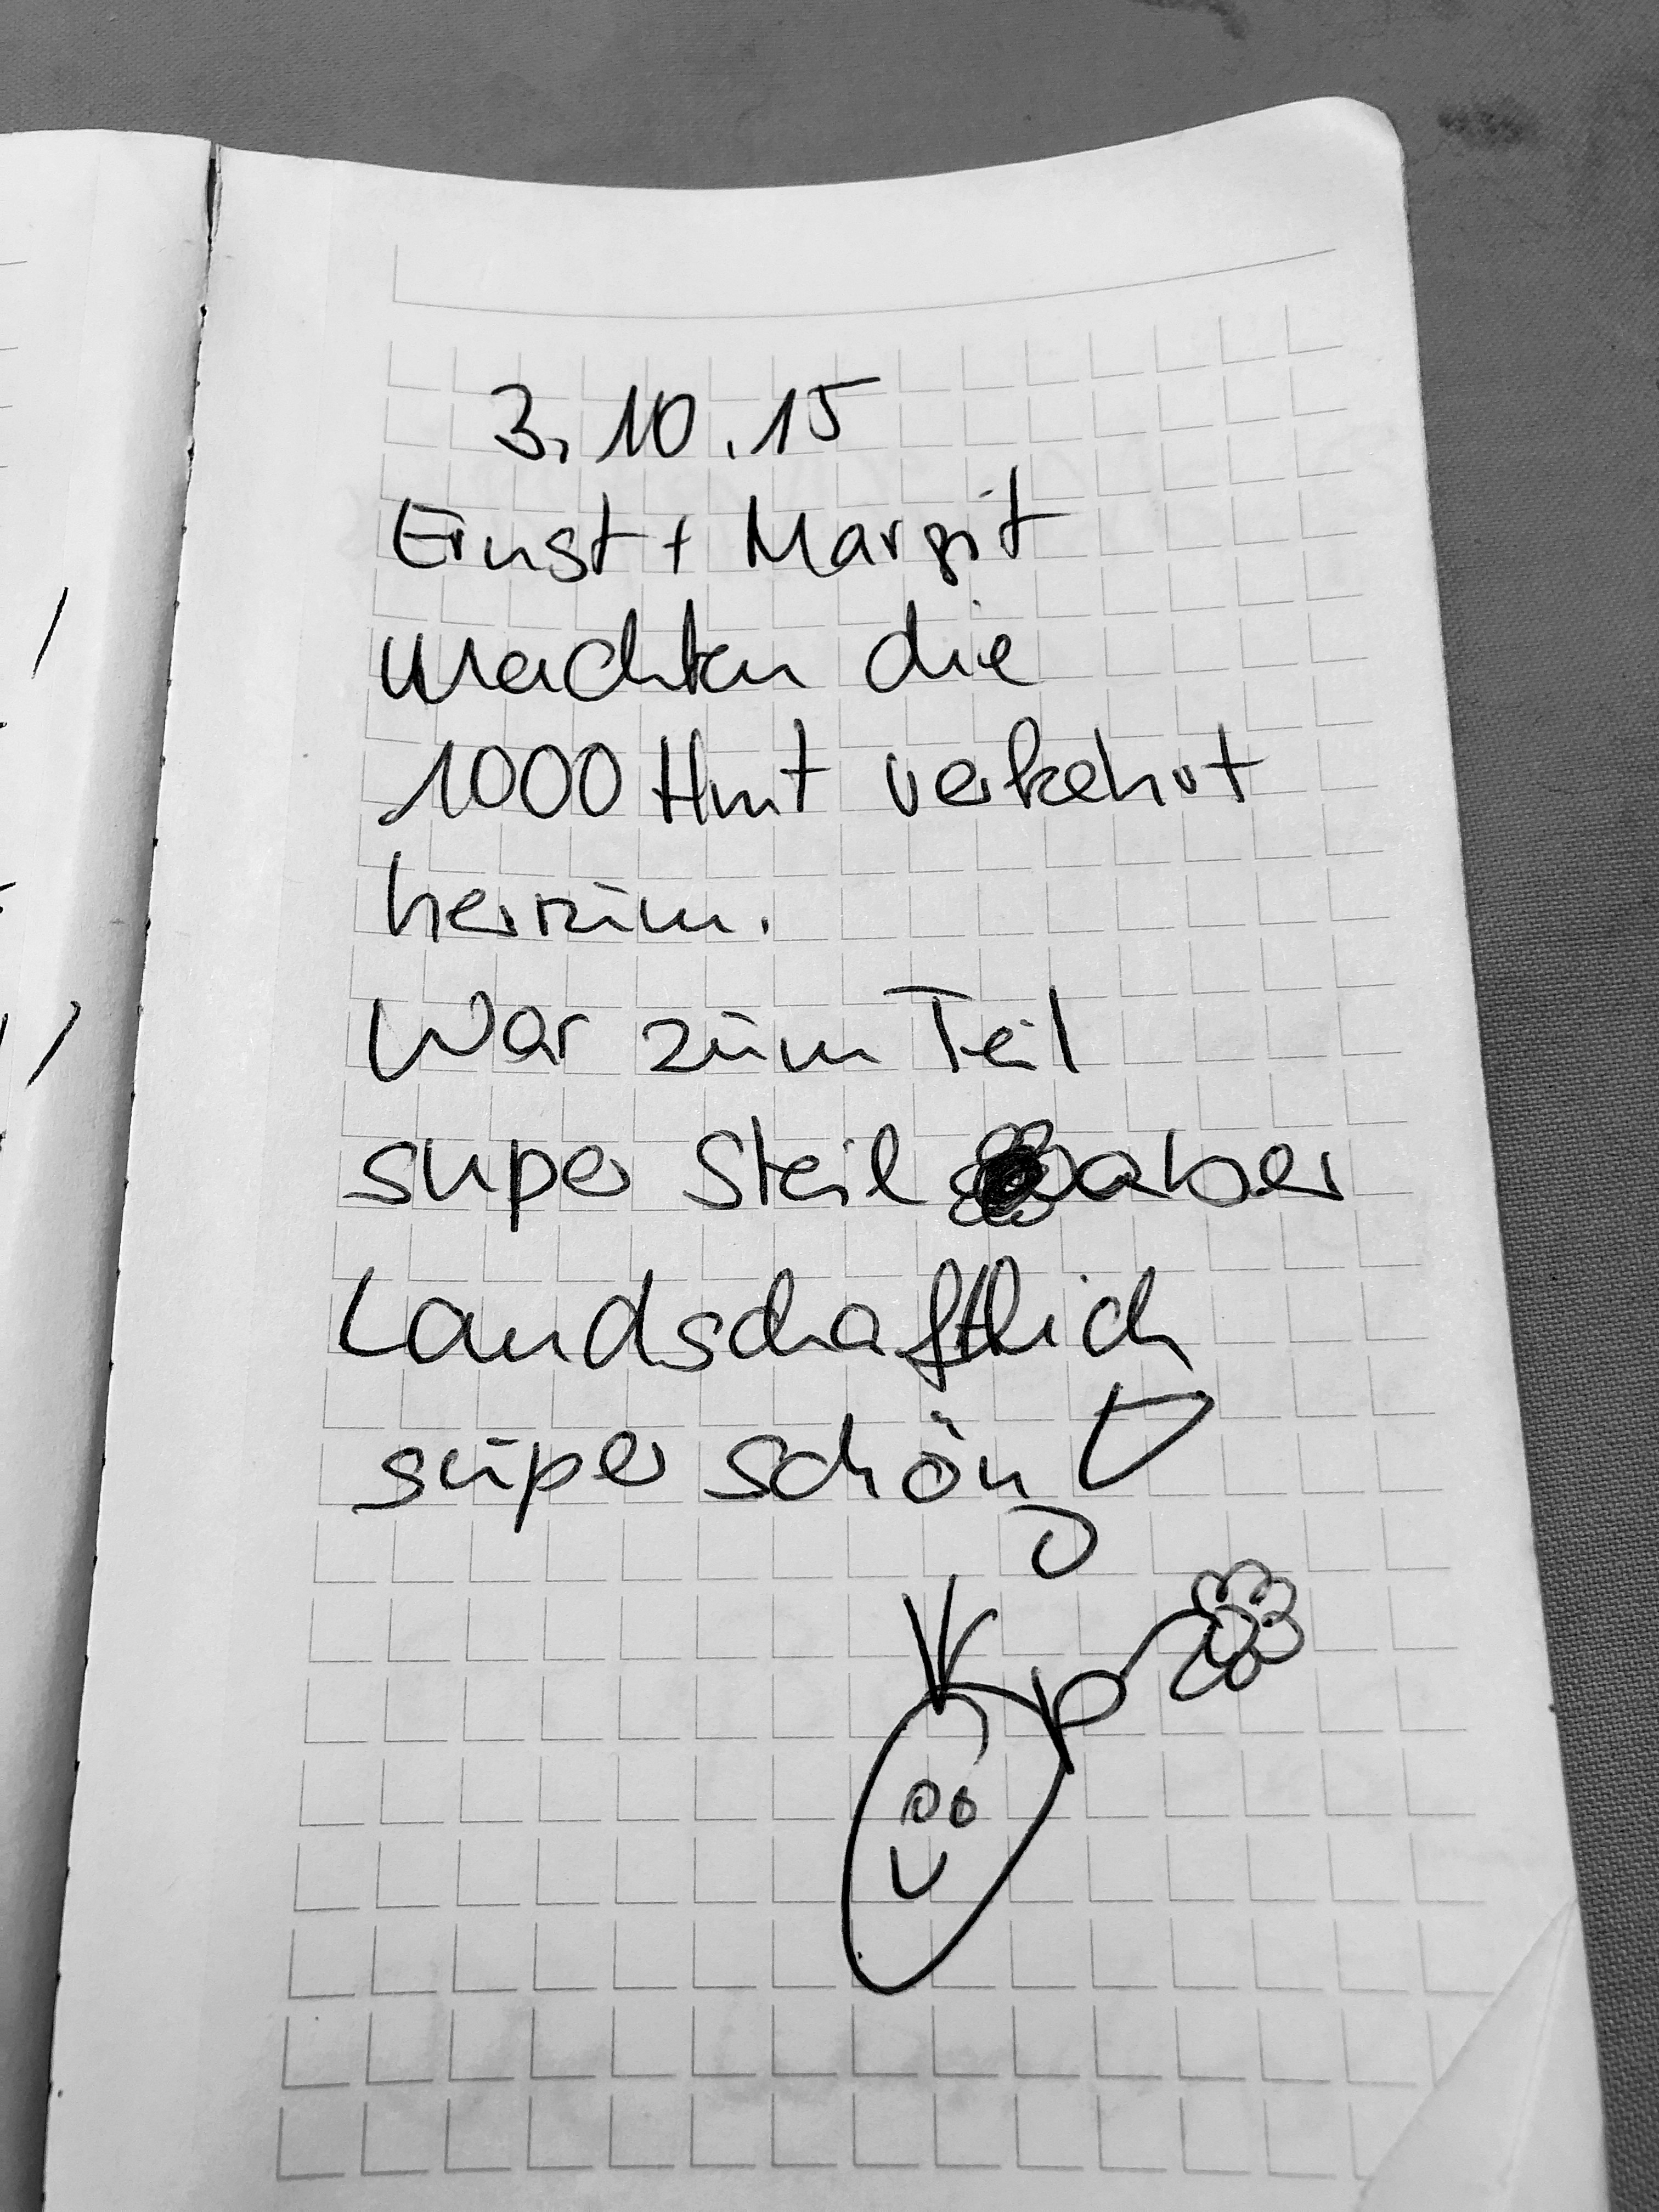 3.10.15
Ernst + Margit
machten die
1000 Hmt verkehrt
herrum.
War zum Teil
super Steil aber
Landschaftlich
super schön!